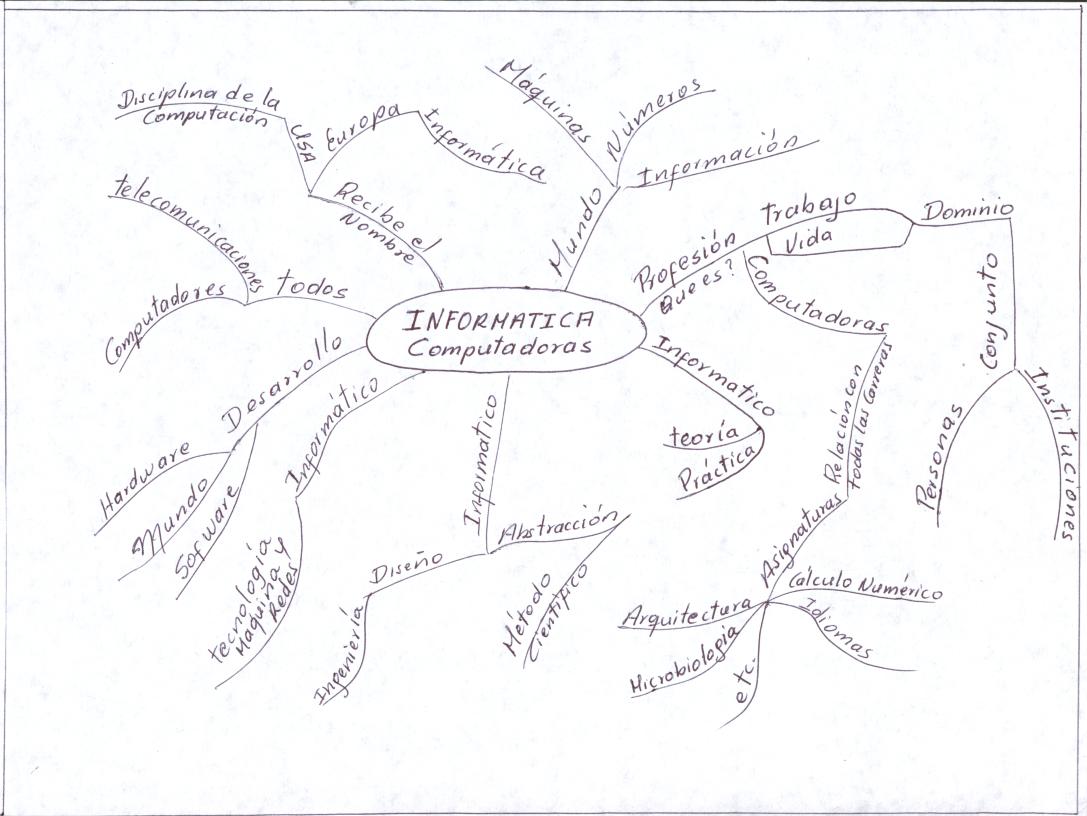 Máquinas
Números
Información
Mundo
Disciplina de la
Computación
USA
Europa
Informática
Recibe el
Nombre
telecomunicaciones
Computadores
todos
INFORMATICA
Computadoras
Profesión
Que es?
trabajo
Vida
Dominio
Conjunto
Personas
Instituciones
Computadoras
Relación con
todas las Carreras
Asignaturas
Cálculo Numérico
Idiomas
Arquitectura
Microbiología
etc.
Informatico
teoría
Práctica
Desarrollo
Hardware
Mundo
Sofware
Informático
tecnología
Máquina y
Redes
Informatico
Diseño
Ingeniería
Abstracción
Método
Científico